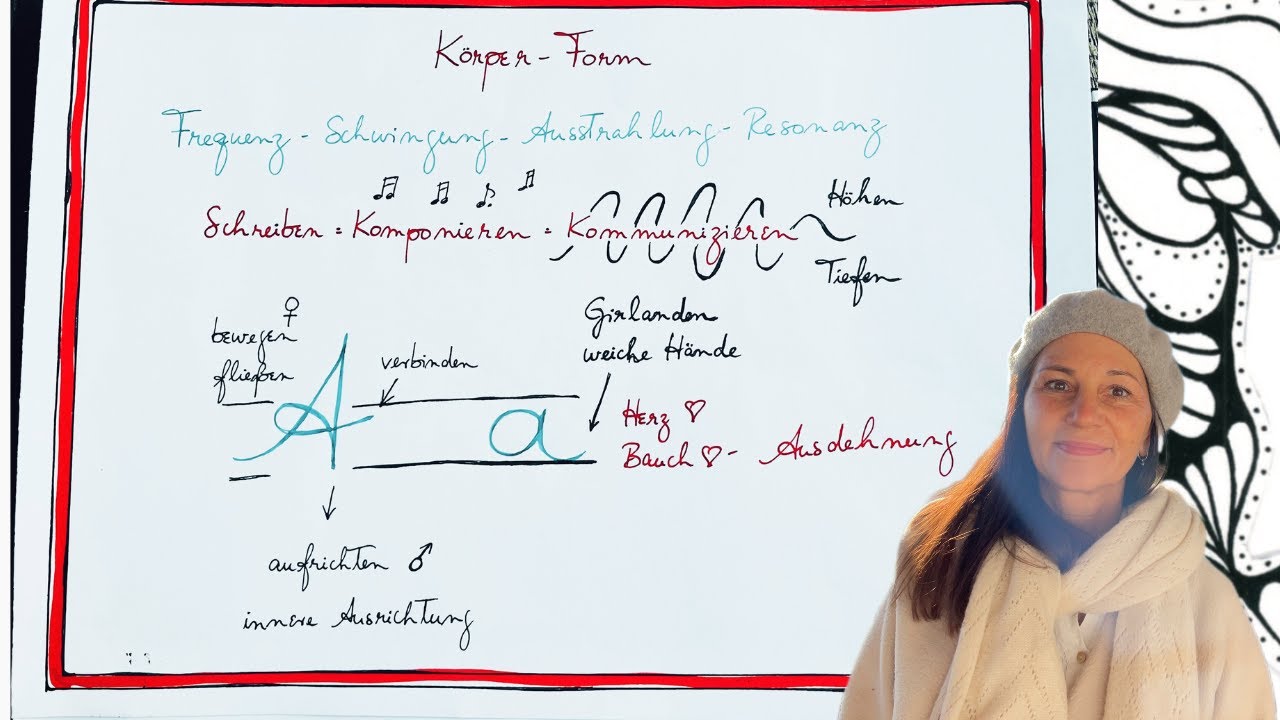 Körper-Form
Frequenz - Schwingung - Ausstrahlung - Resonanz
Schreiben = Komponieren = Kommunizieren
Höhen
Tiefen
bewegen
fließen
verbinden
Girlanden
weiche Hände
A
a
Herz ♡
Bauch ♡ - Ausdehnung
aufrichten ♂
innere Ausrichtung